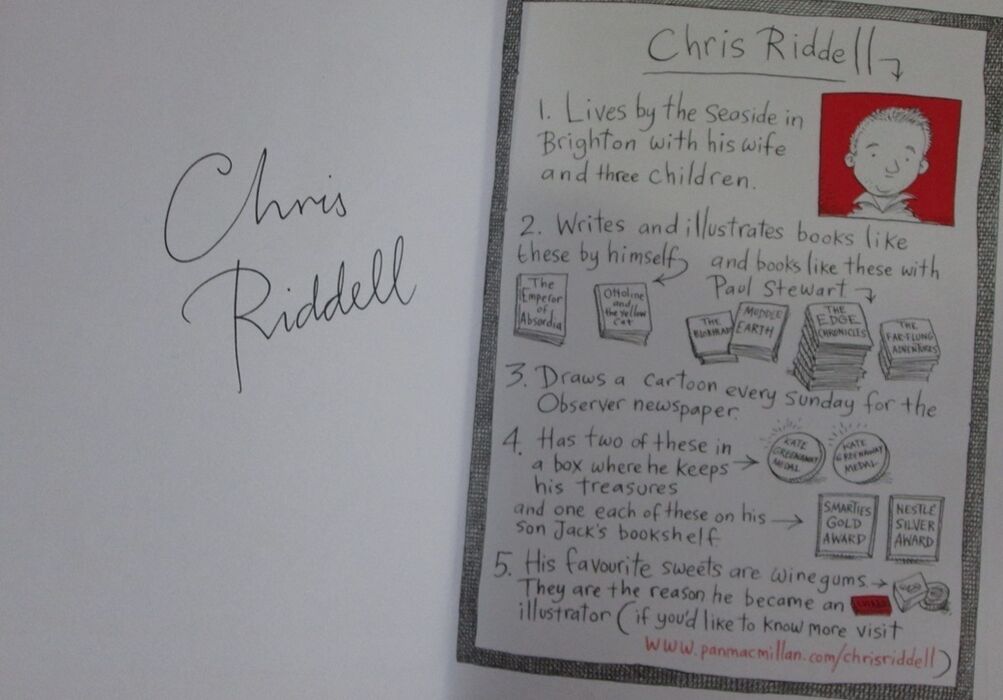 Chris
Riddell
Chris Riddell
1. Lives by the seaside in
Brighton with his wife
and three children.
2. Writes and illustrates books like
these by himself and books like these with
Paul Stewart
The
Emperor
of
Absurdia
Ottoline
and
the Yellow
Cat
THE
MUDDLE
EARTH
THE
EDGE
CHRONICLES
THE
FAR-FLUNG
ADVENTURES
3. Draws a cartoon every Sunday for the
Observer newspaper.
4. Has two of these in
a box where he keeps
his treasures
KATE
GREENAWAY
MEDAL
KATE
GREENAWAY
MEDAL
and one each of these on his
son Jack's bookshelf
SMARTIES
GOLD
AWARD
NESTLÉ
SILVER
AWARD
5. His favourite sweets are winegums.
They are the reason he became an
illustrator (if you'd like to know more visit
www.panmacmillan.com/chrisriddell)